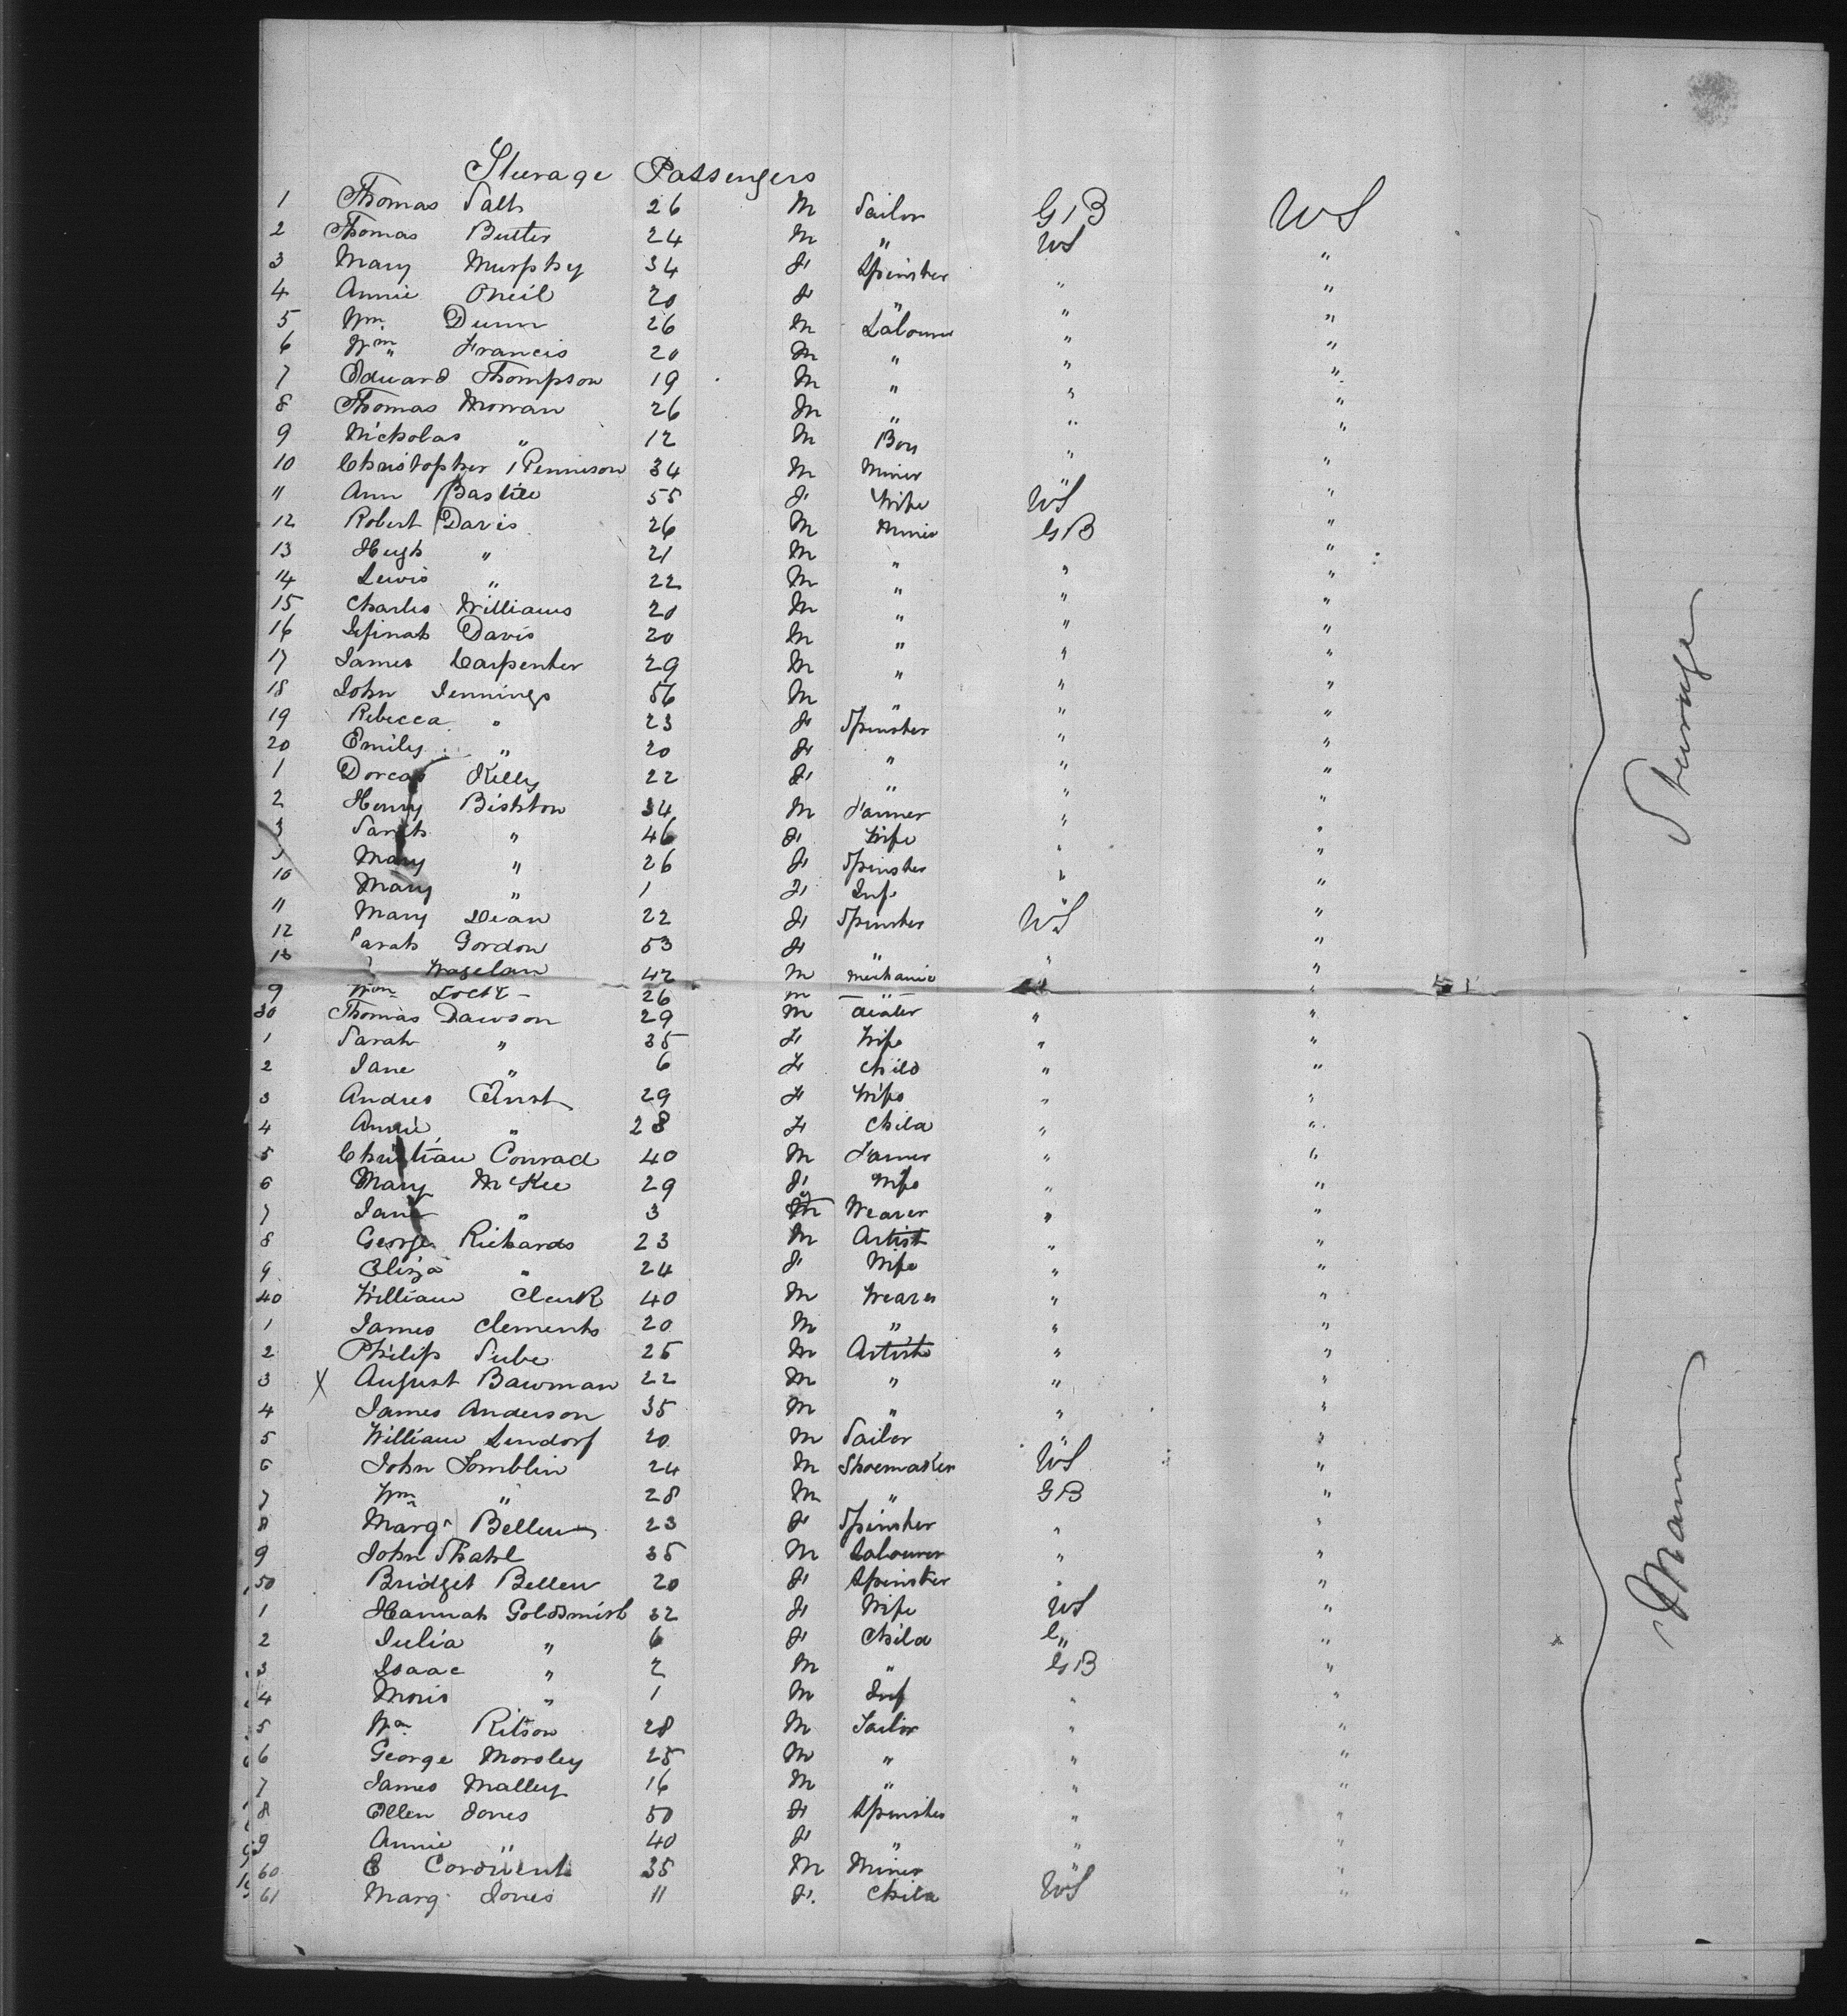 Steerage Passengers
1 Thomas Salt 26 M Tailor GB US
2 Thomas Butter 24 M " US "
3 Mary Murphy 34 F Spinster " "
4 Annie Oneil 20 F " " "
5 Wm Dunn 26 M Labourer " "
6 Wm Francis 20 M " " "
7 Edward Thompson 19 M " " "
8 Thomas Morran 26 M " " "
9 Nicholas " 12 M Boy " "
10 Christopher Pennison 34 M Miner " "
11 Ann 55 F Wife US "
12 Robert Davis 26 M Miner GB "
13 Hugh " 21 M " " "
14 Lewis " 22 M " " "
15 Charles Williams 20 M " " "
16 Davis 20 M " " "
17 James Carpenter 29 M " " "
18 John Jennings 56 M " " "
19 Rebecca " 23 F Spinster " "
20 Emily " 20 F " " "
1 Dorcas Kelly 22 F " " "
2 Henry Bishton 34 M Farmer " "
3 Sarah " 46 F Wife " "
Mary " 26 F Spinster " "
10 Mary " 1 F Inf " "
11 Mary Dean 22 F Spinster US "
12 Sarah Gordon 53 F " " "
42 M Mechanic " "
9 Wm Lock 26 M " "
30 Thomas Dawson 29 M " "
1 Sarah " 35 F Wife " "
2 Jane " 6 F Child " "
3 Andres Ernst 29 F Wife " "
4 Annie " 28 F Child " "
5 Christian Conrad 40 M Farmer " "
6 Mary McKee 29 F Wife " "
7 Jane " 3 Weaver " "
8 George Richards 23 M Artist " "
9 Eliza " 24 F Wife " "
40 William Clark 40 M Weaver " "
1 James Clements 20 M " " "
2 Philip Sube 25 M Artist " "
3 X August Bawman 22 M " " "
4 James Anderson 35 M " " "
5 William Lendorf 20 M Tailor " "
6 John Tomblin 24 M Shoemaker US "
7 Wm " 28 M " GB "
8 Margt Bellew 23 F Spinster " "
9 John Stahl 35 M Labourer " "
50 Bridget Bellew 20 F Spinster " "
1 Hannah Goldsmith 32 F Wife US "
2 Julia " 6 F Child " "
3 Isaac " 2 M " GB "
4 Moris " 1 M Inf " "
5 Wm Ritson 28 M Tailor " "
6 George Morsley 25 M " " "
7 James Malley 16 M " " "
8 Ellen Jones 50 F Spinster " "
9 Annie " 40 F " " "
60 E 35 M Miner " "
61 Marg Jones 11 F Child US "
Steerage
Main